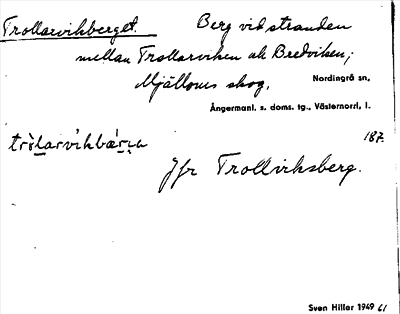 Trollarvikberget. Berg vid stranden
mellan Trollarviken ok Bredviken;
Mjälloms skog, Nordingrå sn,
Ångermanl. s. doms. tg., Västernorrl. l.
187.
Jfr Trollviksberg.
Sven Hillar 1949 61